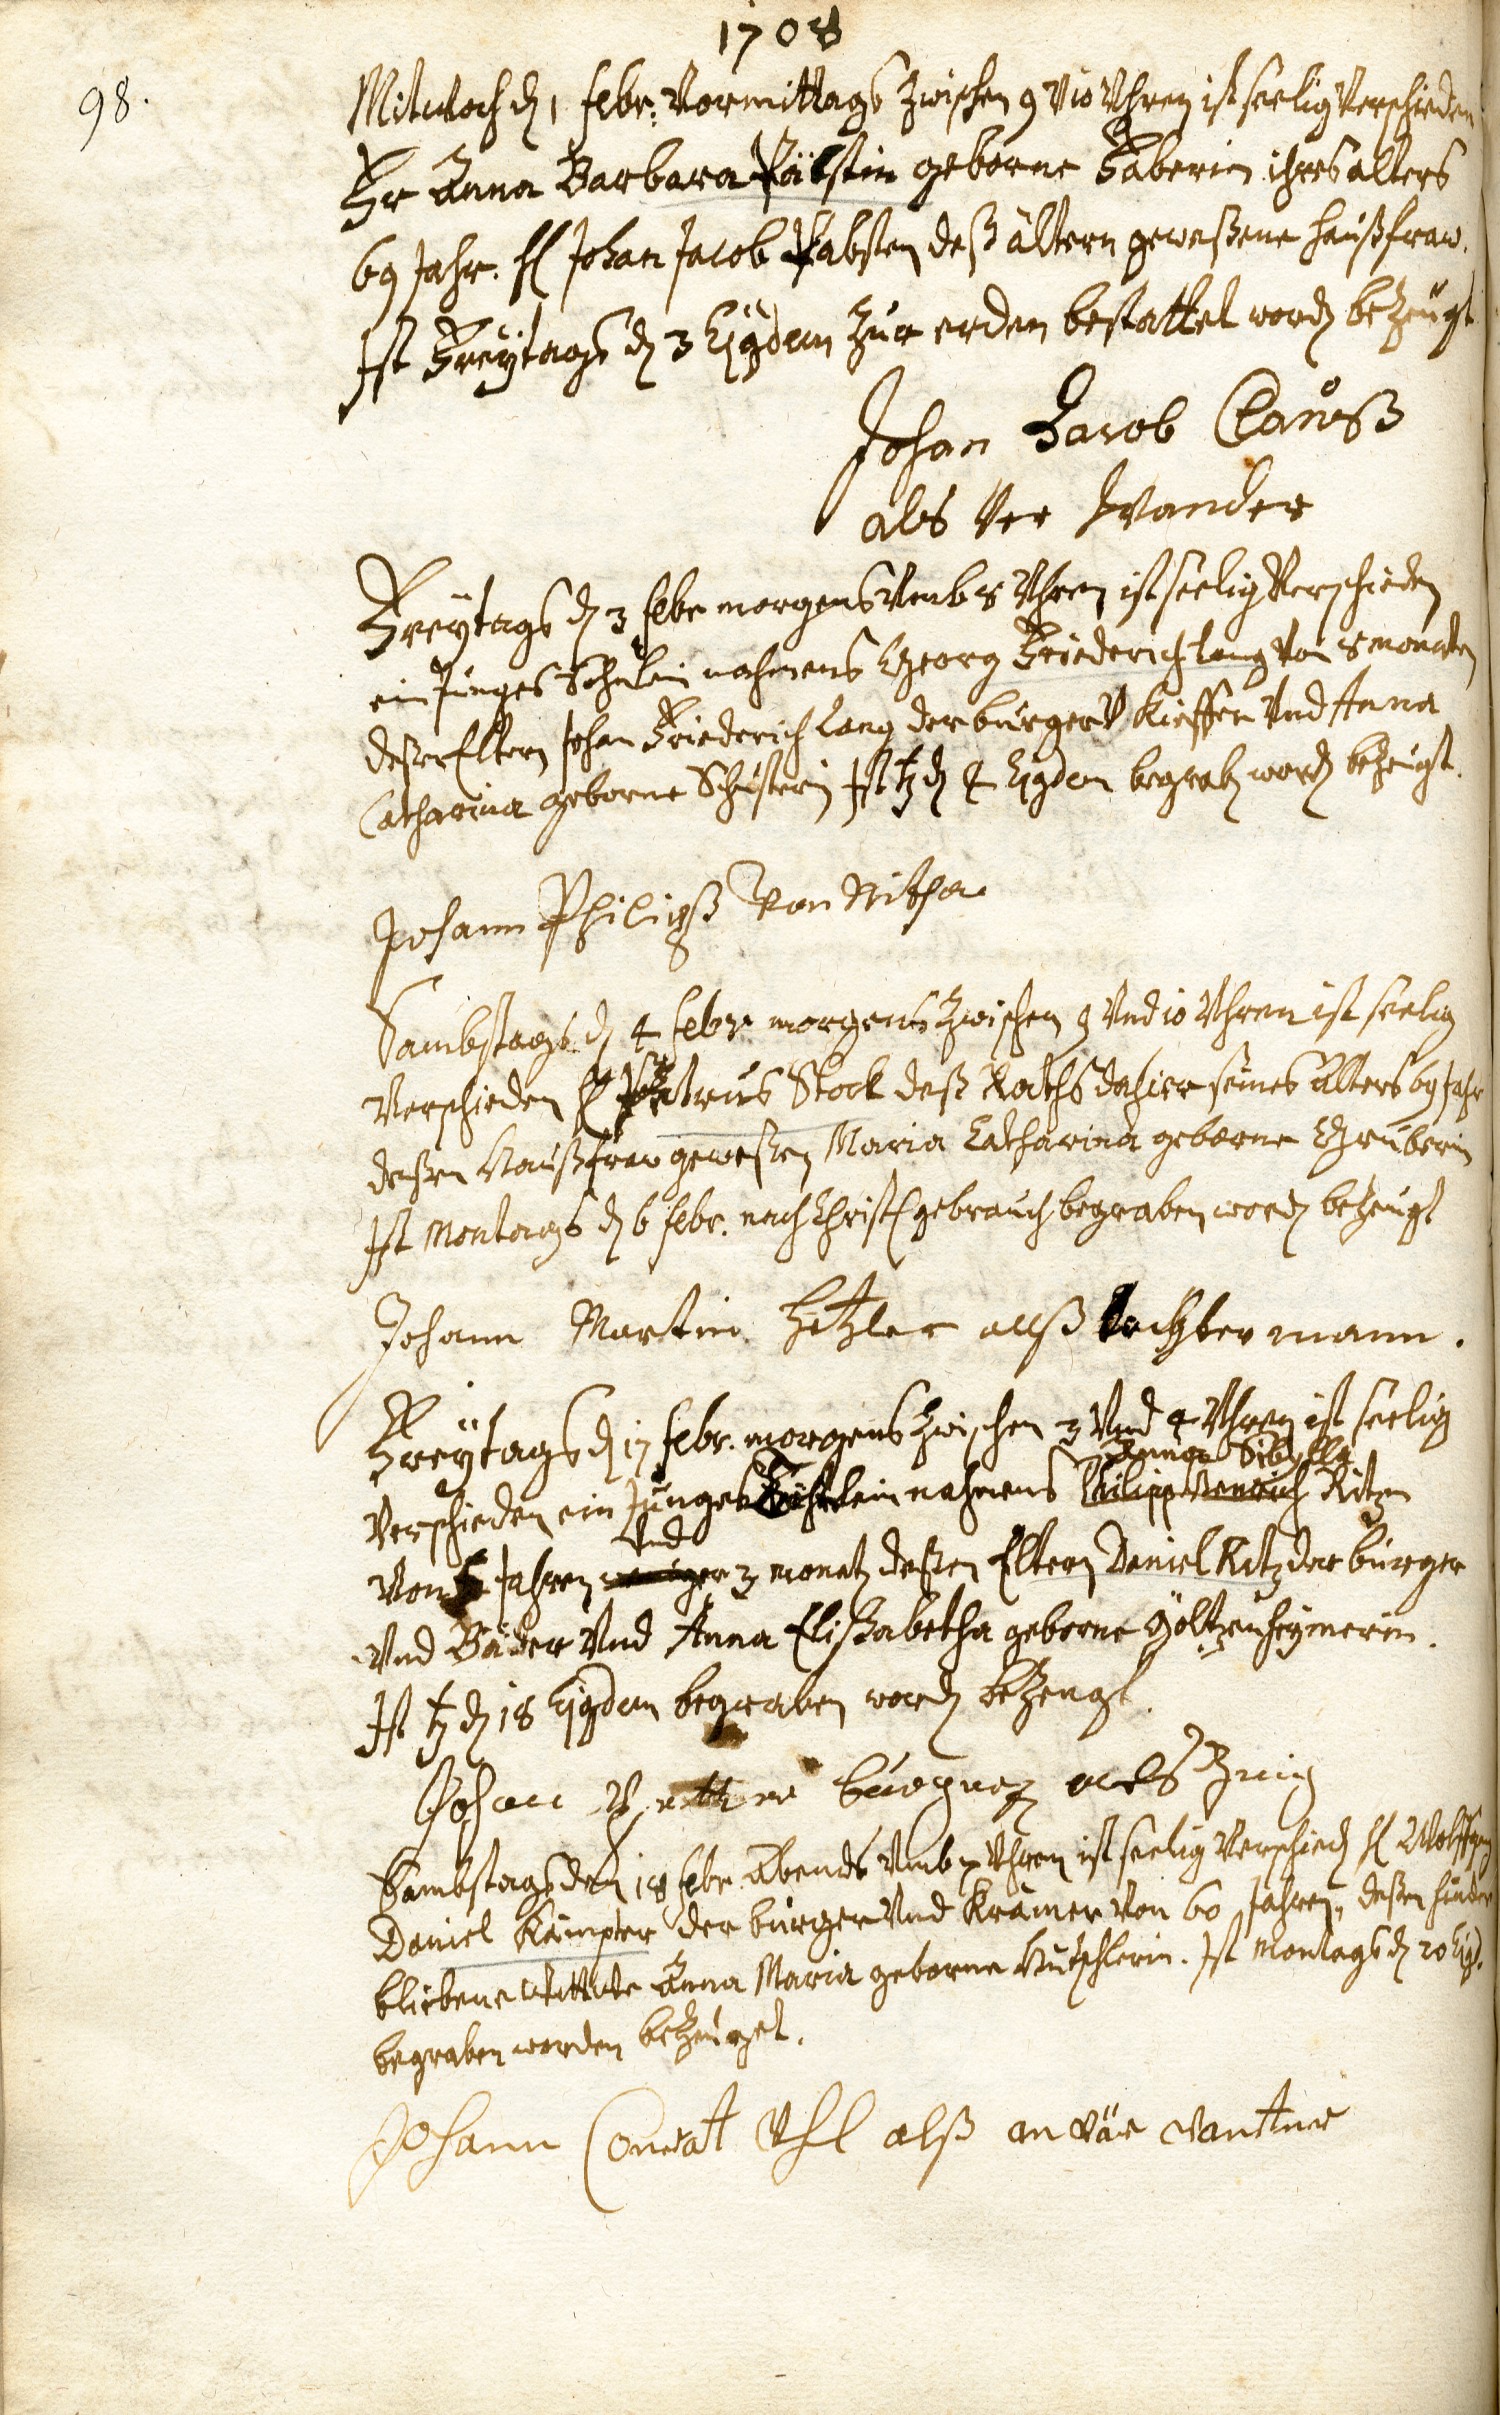 1708
98.
Mitwoch d 1 febr: Vormittags zwischen 9 V 10 Vhren ist seelig Verschieden
Fr Anna Barbara Päbstin geborne Faberin ihres alters
69 Jahr. H Johan Jacob Pabsten deß ältern geweßene haußfraw.
Ist Freÿtags d 3 Ejusdem zur erden bestattet word bezeugt
Johan Jacob Claůß
als Ver Wander
Freÿtags d 3 febr morgens Vmb 8 Vhren ist seelig Verschieden
ein Junges Söhnlein nahmens Georg Friederich Lang Von 8 monaten
deßen Eltern Johan Friederich Lang der burger V Kieffer Vnd Anna
Catharina geborne Schusterin Ist d 4 Ejusdem begrab word bezeugt.
Johann Philipß Von Nitha
Sambstags d 4 febr morgens zwischen 9 Vnd 10 Vhren ist seelig
Verschieden H Petrus Stock deß Raths dahier seines alters 69 Jahr
deßen Haußfraw geweßen Maria Catharina geborne Gruberin
Ist Montags d 6 febr. nach Christl gebrauch begraben word bezeugt
Johann Martin Hetzler allß tochter mann.
Freÿtags d 17 febr. morgens zwischen 3 Vnd 4 Vhren ist seelig
Anna Sibylla
Verschieden ein Junges Töchterlein nahmens Philipp Henrich Ritzin
Vnd
Von Jahren weniger 3 monat deßen Eltern Daniel Ritz der burger
Vnd Bader Vnd Anna Elisabetha geborne Höltzenheymerin.
Ist d 18 Ejusdem begraben word bezeugt.
Johan als Zeüg
Sambstags den 18 febr Abends Vmb Vhren ist seelig Verschied H Wolffgang
Daniel Kämpter der burger Vnd Krämer Von 60 Jahren, deßen hinder
bliebene Wittwe Anna Maria geborne . Ist Montags d 20 Ejusd.
begraben worden bezeuget.
Johann Conratt Vhl alß an Vär wantner